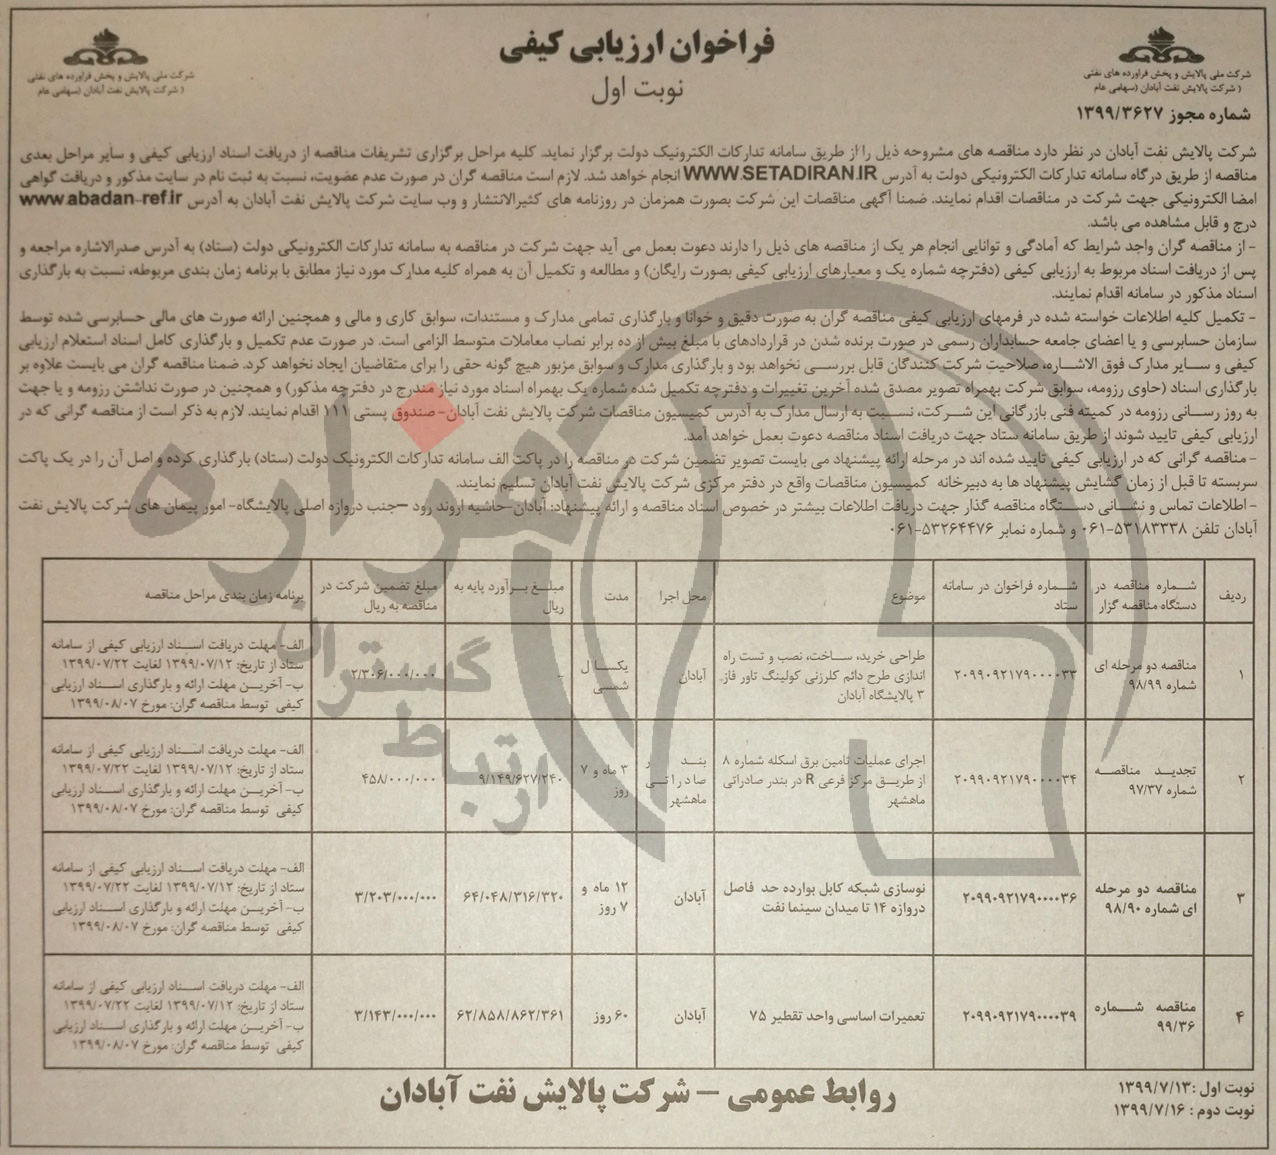 شرکت ملی پالایش و پخش فراورده های نفتی
( شرکت پالایش نفت آبادان (سهامی عام
شماره مجوز ۱۳۹۹/۳۶۲۷
فراخوان ارزیابی کیفی
نوبت اول
شرکت ملی پالایش و پخش فراورده های نفتی
( شرکت پالایش نفت آبادان (سهامی عام
شرکت پالایش نفت آبادان در نظر دارد مناقصه های مشروحه ذیل را از طریق سامانه تدارکات الکترونیک دولت برگزار نماید. کلیه مراحل برگزاری تشریفات مناقصه از دریافت اسناد ارزیابی کیفی و سایر مراحل بعدی
مناقصه از طریق درگاه سامانه تدارکات الکترونیکی دولت به آدرس WWW.SETADIRAN.IR انجام خواهد شد. لازم است مناقصه گران در صورت عدم عضویت، نسبت به ثبت نام در سایت مذکور و دریافت گواهی
امضا الکترونیکی جهت شرکت در مناقصات اقدام نمایند. ضمنا آگهی مناقصات این شرکت بصورت همزمان در روزنامه های کثیرالانتشار و وب سایت شرکت پالایش نفت آبادان به آدرس www.abadan-ref.ir
درج و قابل مشاهده می باشد.
- از مناقصه گران واجد شرایط که آمادگی و توانایی انجام هر یک از مناقصه های ذیل را دارند دعوت بعمل می آید جهت شرکت در مناقصه به سامانه تدارکات الکترونیکی دولت (ستاد) به آدرس صدرالاشاره مراجعه و
پس از دریافت اسناد مربوط به ارزیابی کیفی (دفترچه شماره یک و معیارهای ارزیابی کیفی بصورت رایگان) و مطالعه و تکمیل آن به همراه کلیه مدارک مورد نیاز مطابق با برنامه زمان بندی مربوطه، نسبت به بارگذاری
اسناد مذکور در سامانه اقدام نمایند.
- تکمیل کلیه اطلاعات خواسته شده در فرمهای ارزیابی کیفی مناقصه گران به صورت دقیق و خوانا و بارگذاری تمامی مدارک و مستندات، سوابق کاری و مالی و همچنین ارائه صورت های مالی حسابرسی شده توسط
سازمان حسابرسی و یا اعضای جامعه حسابداران رسمی در صورت برنده شدن در قراردادهای با مبلغ بیش از ده برابر نصاب معاملات متوسط الزامی است. در صورت عدم تکمیل و بارگذاری کامل اسناد استعلام ارزیابی
کیفی و سایر مدارک فوق الاشاره، صلاحیت شرکت کنندگان قابل بررسی نخواهد بود و بارگذاری مدارک و سوابق مزبور هیچ گونه حقی را برای متقاضیان ایجاد نخواهد کرد. ضمنا مناقصه گران می بایست علاوه بر
بارگذاری اسناد (حاوی رزومه، سوابق شرکت بهمراه تصویر مصدق شده آخرین تغییرات و دفترچه تکمیل شده شماره یک بهمراه اسناد مورد نیاز مندرج در دفترچه مذکور) و همچنین در صورت نداشتن رزومه و یا جهت
به روز رسانی رزومه در کمیته فنی بازرگانی این شرکت، نسبت به ارسال مدارک به آدرس کمیسیون مناقصات شرکت پالایش نفت آبادان- صندوق پستی ۱۱۱ اقدام نمایند. لازم به ذکر است از مناقصه گرانی که در
ارزیابی کیفی تایید شوند از طریق سامانه ستاد جهت دریافت اسناد مناقصه دعوت بعمل خواهد آمد.
- مناقصه گرانی که در ارزیابی کیفی تایید شده اند در مرحله ارائه پیشنهاد می بایست تصویر تضمین شرکت در مناقصه را در پاکت الف سامانه تدارکات الکترونیک دولت (ستاد) بارگذاری کرده و اصل آن را در یک پاکت
سربسته تا قبل از زمان گشایش پیشنهاد ها به دبیرخانه کمیسیون مناقصات واقع در دفتر مرکزی شرکت پالایش نفت آبادان تسلیم نمایند.
- اطلاعات تماس و نشانی دستگاه مناقصه گذار جهت دریافت اطلاعات بیشتر در خصوص اسناد مناقصه و ارائه پیشنهاد: آبادان-حاشیه اروند رود –جنب دروازه اصلی پالایشگاه- امور پیمان های شرکت پالایش نفت
آبادان تلفن ۵۳۱۸۳۳۳۸-۰۶۱ و شماره نمابر ۵۳۲۶۴۴۷۶-۰۶۱
ردیف
شماره مناقصه در
دستگاه مناقصه گزار
شماره فراخوان در سامانه
ستاد
موضوع
محل اجرا
مدت
مبلغ برآورد پایه به
ریال
مبلغ تضمین شرکت در
مناقصه به ریال
برنامه زمان بندی مراحل مناقصه
۱
مناقصه دو مرحله ای
شماره ۹۸/۹۹
۲۰۹۹۰۹۲۱۷۹۰۰۰۰۳۳
طراحی خرید، ساخت، نصب و تست راه
اندازی طرح دائم کلرزنی کولینگ تاور فاز
۳ پالایشگاه آبادان
آبادان
یکسال
شمسی
_
۲/۳۰۶/۰۰۰/۰۰۰
الف- مهلت دریافت اسناد ارزیابی کیفی از سامانه
ستاد از تاریخ: ۱۳۹۹/۰۷/۱۲ لغایت ۱۳۹۹/۰۷/۲۲
ب- آخرین مهلت ارائه و بارگذاری اسناد ارزیابی
کیفی توسط مناقصه گران: مورخ ۱۳۹۹/۰۸/۰۷
۲
تجدید مناقصه
شماره ۹۷/۳۷
۲۰۹۹۰۹۲۱۷۹۰۰۰۰۳۴
اجرای عملیات تامین برق اسکله شماره ۸
از طریق مرکز فرعی R در بندر صادراتی
ماهشهر
بندر
صادراتی
ماهشهر
۳ ماه و ۷
روز
۹/۱۴۹/۶۲۷/۲۴۰
۴۵۸/۰۰۰/۰۰۰
الف- مهلت دریافت اسناد ارزیابی کیفی از سامانه
ستاد از تاریخ: ۱۳۹۹/۰۷/۱۲ لغایت ۱۳۹۹/۰۷/۲۲
ب- آخرین مهلت ارائه و بارگذاری اسناد ارزیابی
کیفی توسط مناقصه گران: مورخ ۱۳۹۹/۰۸/۰۷
۳
مناقصه دو مرحله
ای شماره ۹۸/۹۰
۲۰۹۹۰۹۲۱۷۹۰۰۰۰۳۶
نوسازی شبکه کابل بوارده حد فاصل
دروازه ۱۴ تا میدان سینما نفت
آبادان
۱۲ ماه و
۷ روز
۶۴/۰۴۸/۳۱۶/۳۲۰
۳/۲۰۳/۰۰۰/۰۰۰
الف- مهلت دریافت اسناد ارزیابی کیفی از سامانه
ستاد از تاریخ: ۱۳۹۹/۰۷/۱۲ لغایت ۱۳۹۹/۰۷/۲۲
ب- آخرین مهلت ارائه و بارگذاری اسناد ارزیابی
کیفی توسط مناقصه گران: مورخ ۱۳۹۹/۰۸/۰۷
۴
مناقصه شماره
۹۹/۳۶
۲۰۹۹۰۹۲۱۷۹۰۰۰۰۳۹
تعمیرات اساسی واحد تقطیر ۷۵
آبادان
۶۰ روز
۶۲/۸۵۸/۸۶۲/۳۶۱
۳/۱۴۳/۰۰۰/۰۰۰
الف- مهلت دریافت اسناد ارزیابی کیفی از سامانه
ستاد از تاریخ: ۱۳۹۹/۰۷/۱۲ لغایت ۱۳۹۹/۰۷/۲۲
ب- آخرین مهلت ارائه و بارگذاری اسناد ارزیابی
کیفی توسط مناقصه گران: مورخ ۱۳۹۹/۰۸/۰۷
نوبت اول :۱۳۹۹/۷/۱۳
نوبت دوم : ۱۳۹۹/۷/۱۶
روابط عمومی – شرکت پالایش نفت آبادان
هزاره
ارتباط
گستران